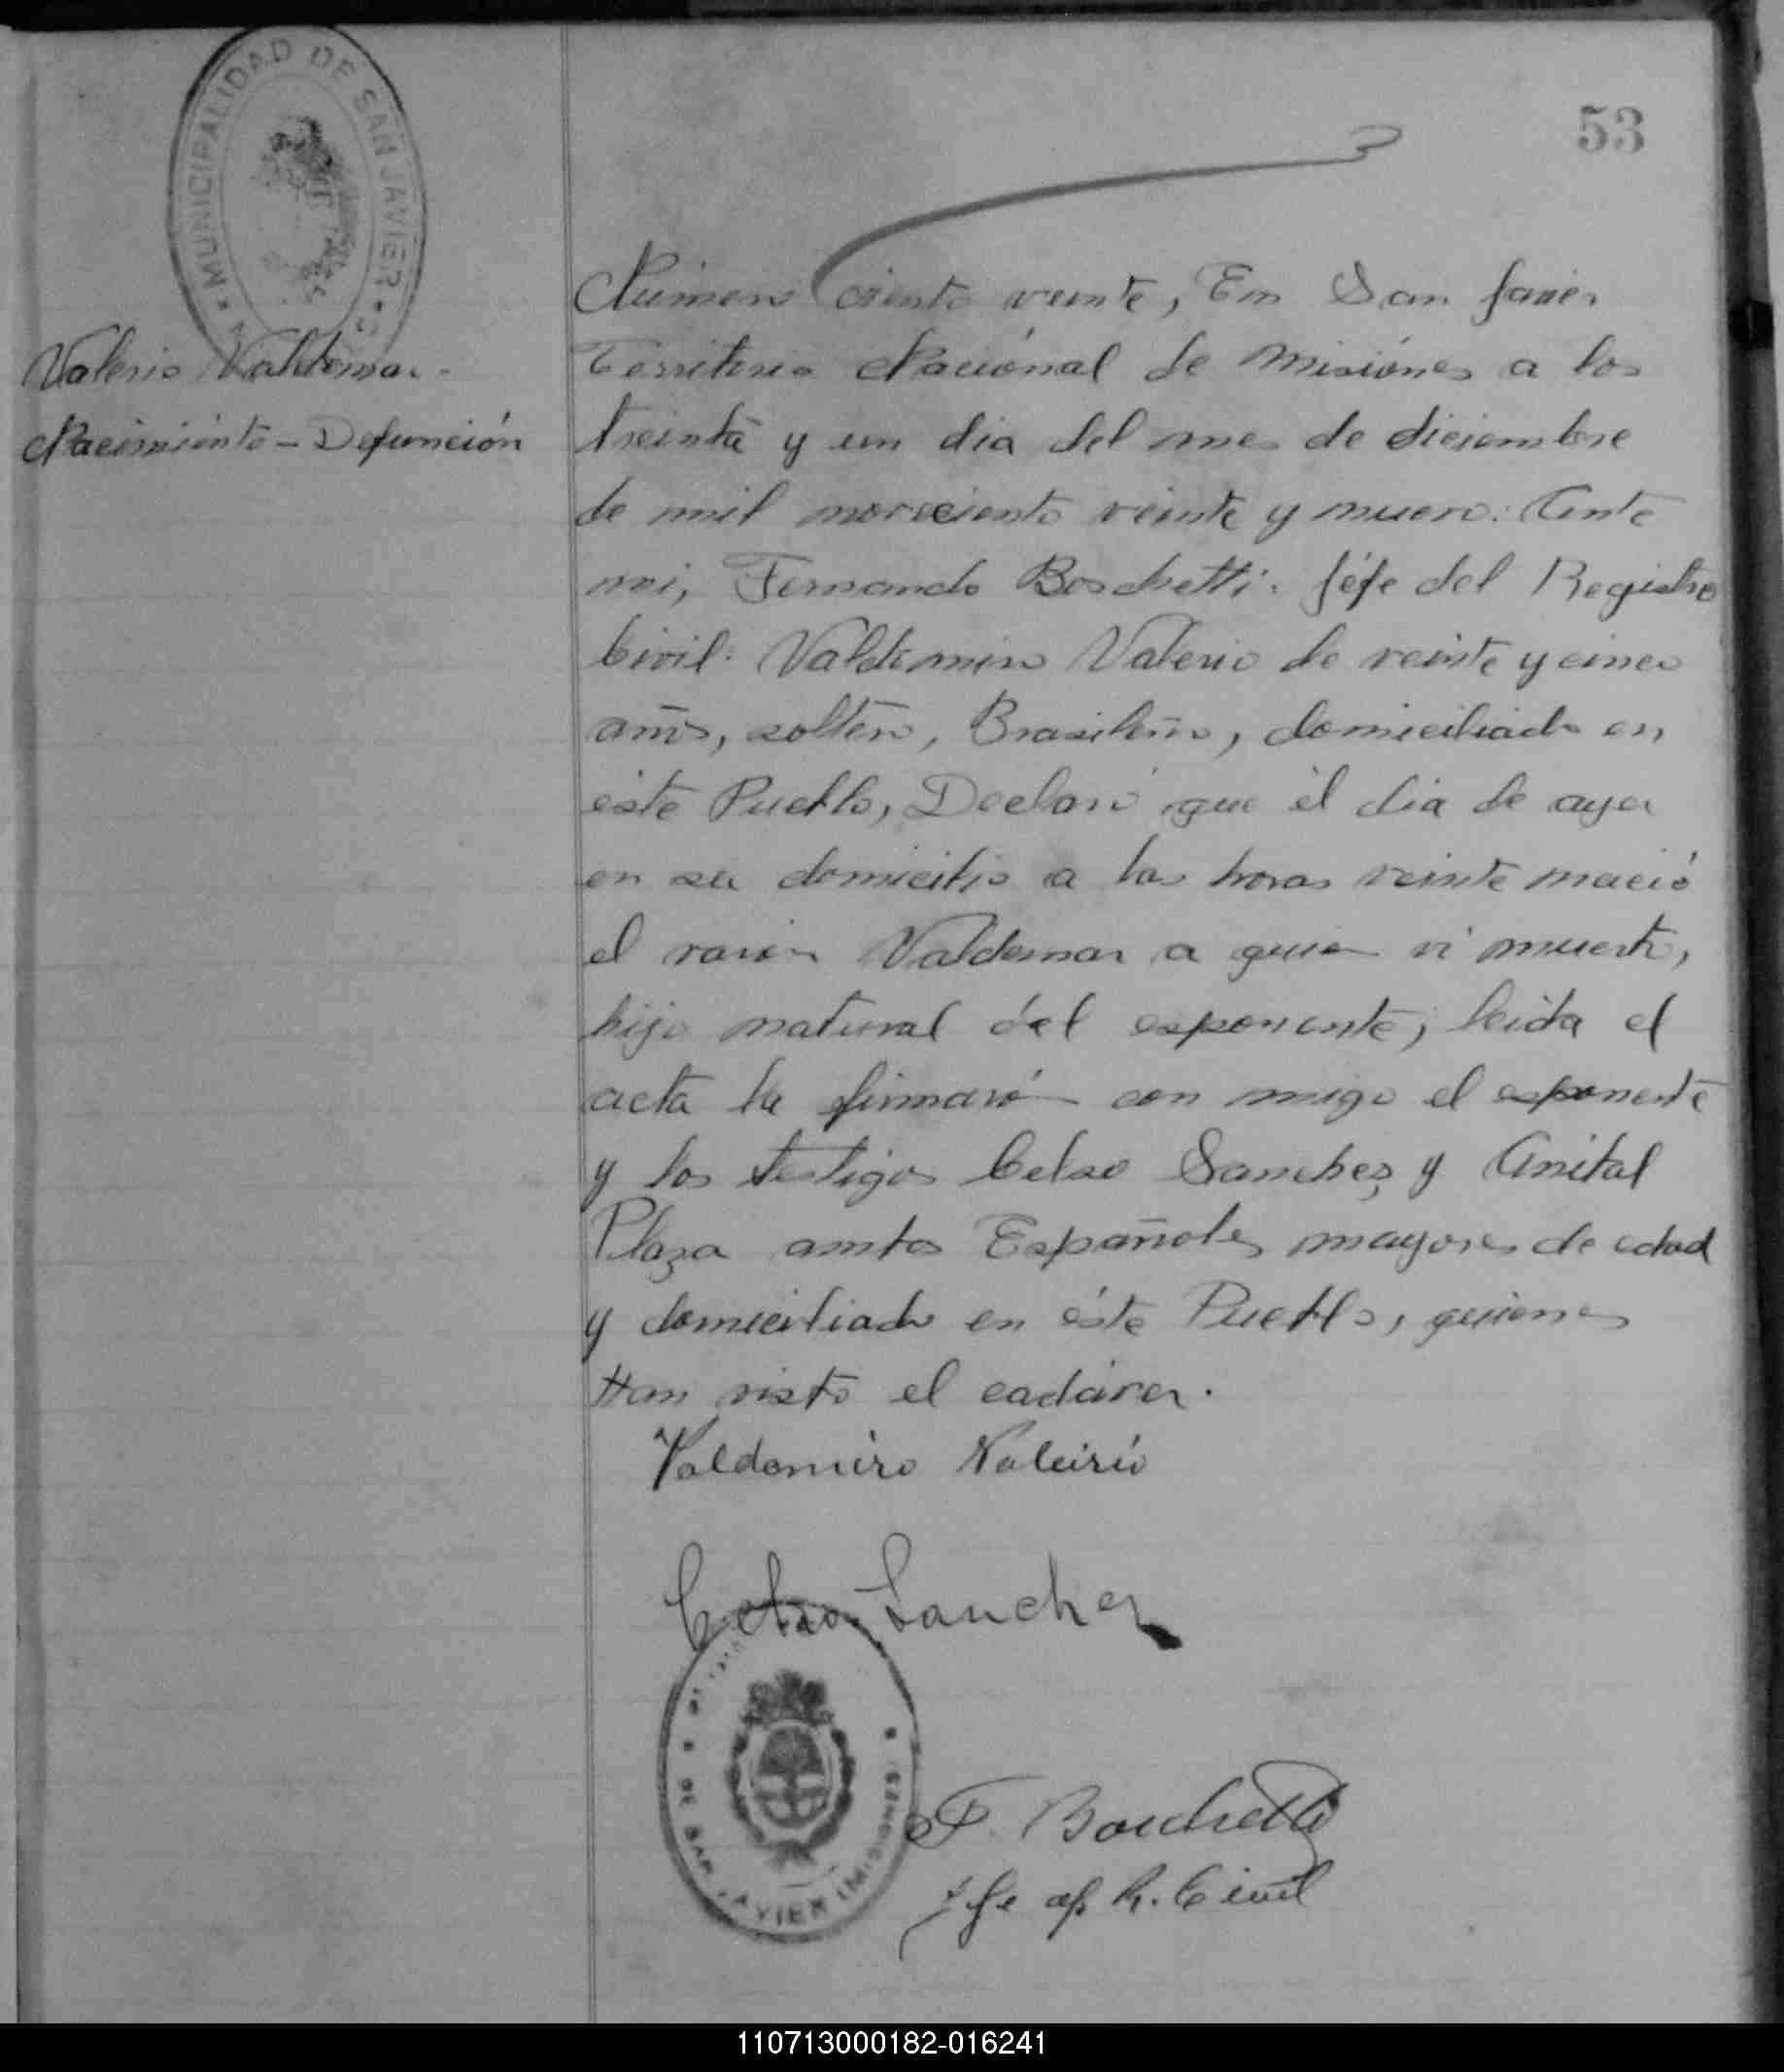 53
MUNICIPALIDAD DE SAN JAVIER
Valerio Valdemar.
Nacimiento - Defunción
Número ciento veinte, En San Javier
Territorio Nacional de Misiónes a los
treinta y un dia del mes de diciembre
de mil novecciento veinte y nuevo: Ante
mi, Fernando Boschetti: Jéfe del Registro
Civil: Valdomiro Valerio de veinte y cinco
años, soltero, Brasileño, domiciliado en
éste Pueblo, Declaró que él dia de ayer
en su domicilio a las horas veinte nació
el varón Valdemar a quien vi muerto,
hijo natural del esponente; leida el
acta la firmaró con migo el esponente
y los testigos Celso Sanchez y Anibal
Plaza ambos Españoles mayores de edad
y domiciliado en éste Pueblo, quienes
Han visto el cadáver.
Valdomiro Valeirio
Celso Sanchez
DE SAN JAVIER (MISIONES)
F. Boschetti
Jfe of R. Civil
110713000182-016241